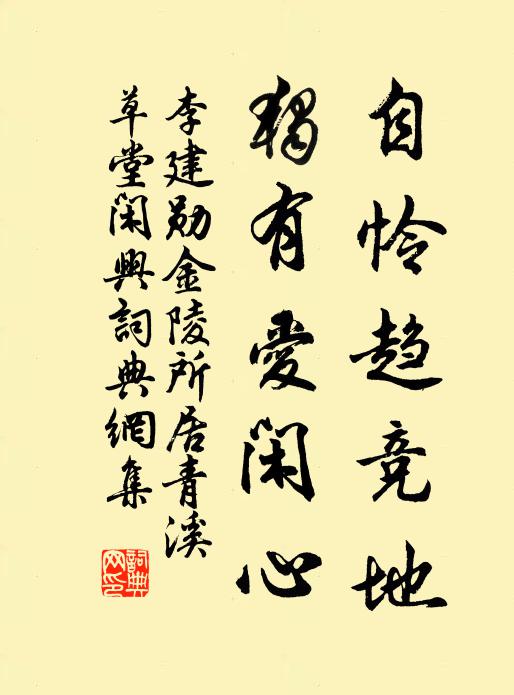 自怜趋竞地
独有爱闲心
李建勋金陵所居青溪
草堂闲興詞典網集
詞典網印